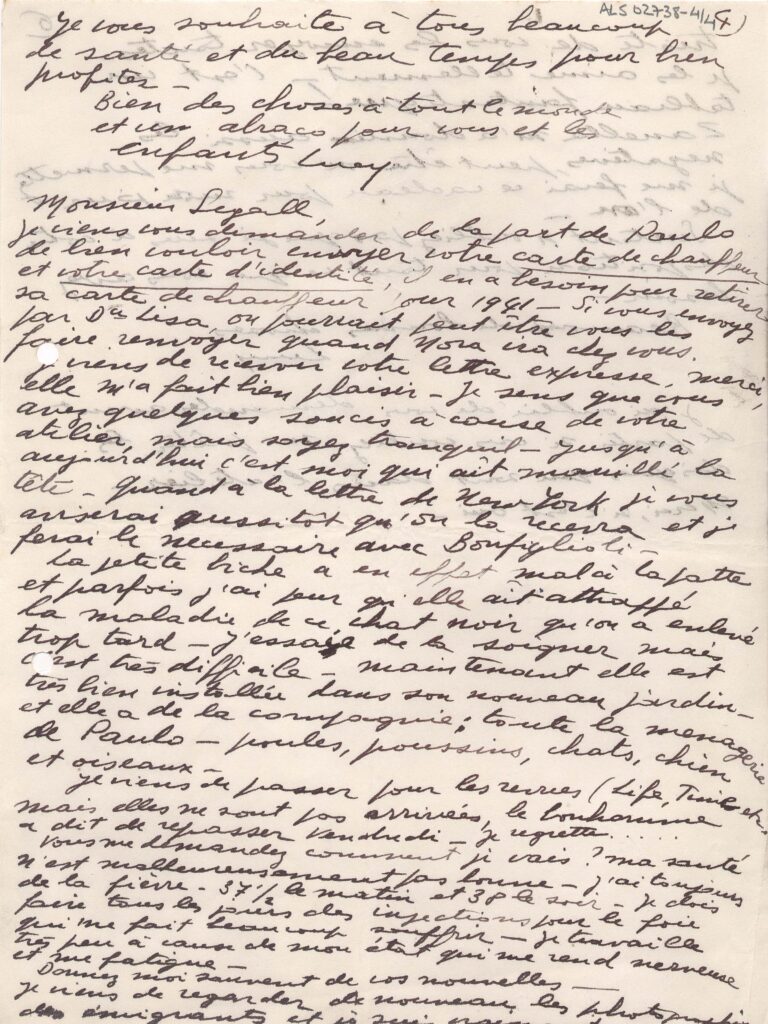 ALS 02738-4/4
4)
Je vous souhaite à tous beaucoup
de santé et du beau temps pour bien
profiter –
Bien des choses à tout le monde
et un abraco pour vous et les
enfants Lucy
Monsieur Segall,
je viens vous demander de la part de Paulo
de bien vouloir envoyer votre carte de chauffeur
et votre carte d'identité, il en a besoin pour retirer
sa carte de chauffeur pour 1941 – Si vous envoyez
par Da Lisa, on pourrait peut être vous les
faire renvoyer quand Nora ira chez vous.
Je viens de recevoir votre lettre expresse, merci,
elle m'a fait bien plaisir – Je sens que vous
avez quelques soucis à cause de votre
atelier, mais soyez tranquil – jusqu'à
aujourd'hui c'est moi qui ait mouillé la
tête – Quand à la lettre de New York je vous
aviserai aussitôt qu'on la recevra et je
ferai le necessaire avec Bonfiglioli –
La petite biche a en effet mal à la patte
et parfois j'ai peur qu'elle ait attrappé
la maladie de ce chat noir qu'on a enlevé
trop tard – J'essaie de la soigner mais
c'est très difficile – maintenant elle est
très bien installée dans son nouveau jardin –
et elle a de la compagnie; toute la menagerie
de Paulo – poules, poussins, chats, chien
et oiseaux –
Je viens de passer pour les revues (Life, Time etc.
mais elles ne sont pas arrivées, le bonhomme
a dit de repasser vendredi – je regrette.....
Vous me demandez comment je vais? ma santé
n'est malheureusement pas bonne – j'ai toujours
de la fièvre – 37 1/2 le matin et 38 le soir – Je dois
faire tous les jours des injections pour le foie
qui me fait beaucoup souffrir – Je travaille
très peu à cause de mon état qui me rend nerveuse
et me fatigue –
Donnez moi souvent de vos nouvelles –
je viens de regarder de nouveau les photographies
des émigrants et je suis